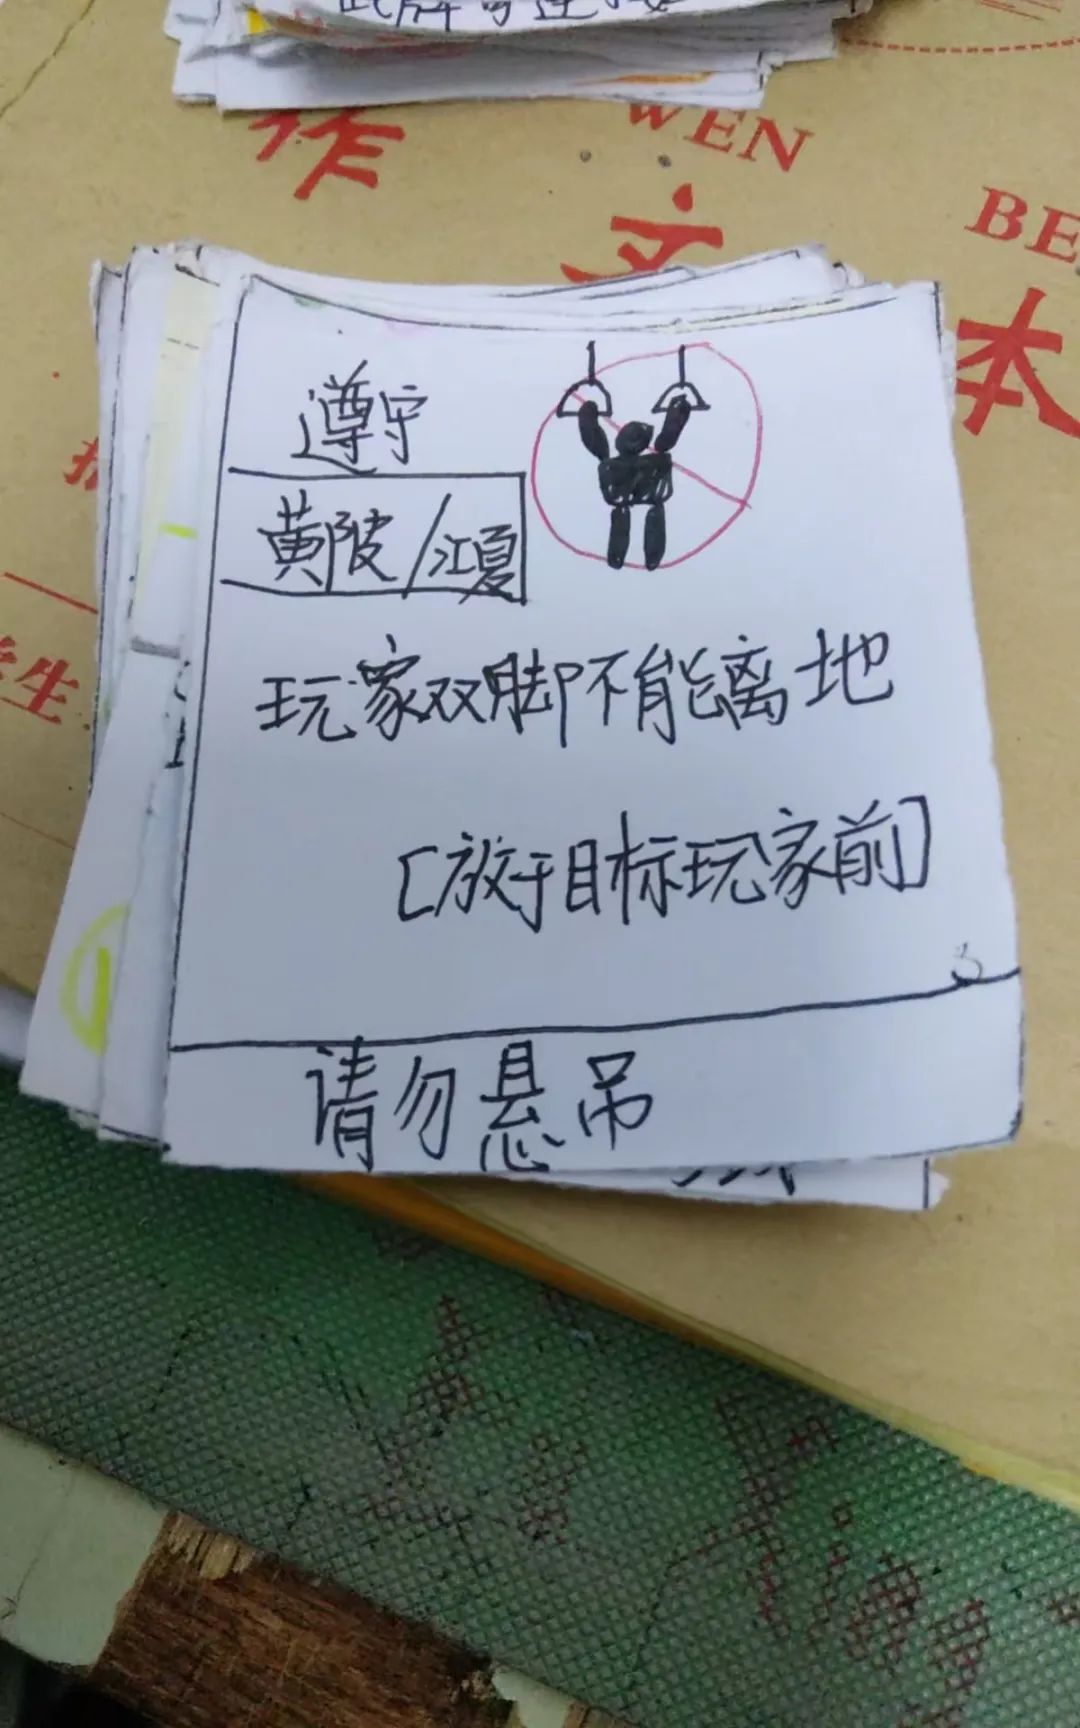 作
文
本
WEN
BE
遵守
黄陂/江夏
玩家双脚不能离地
[放于目标玩家前]
请勿悬吊